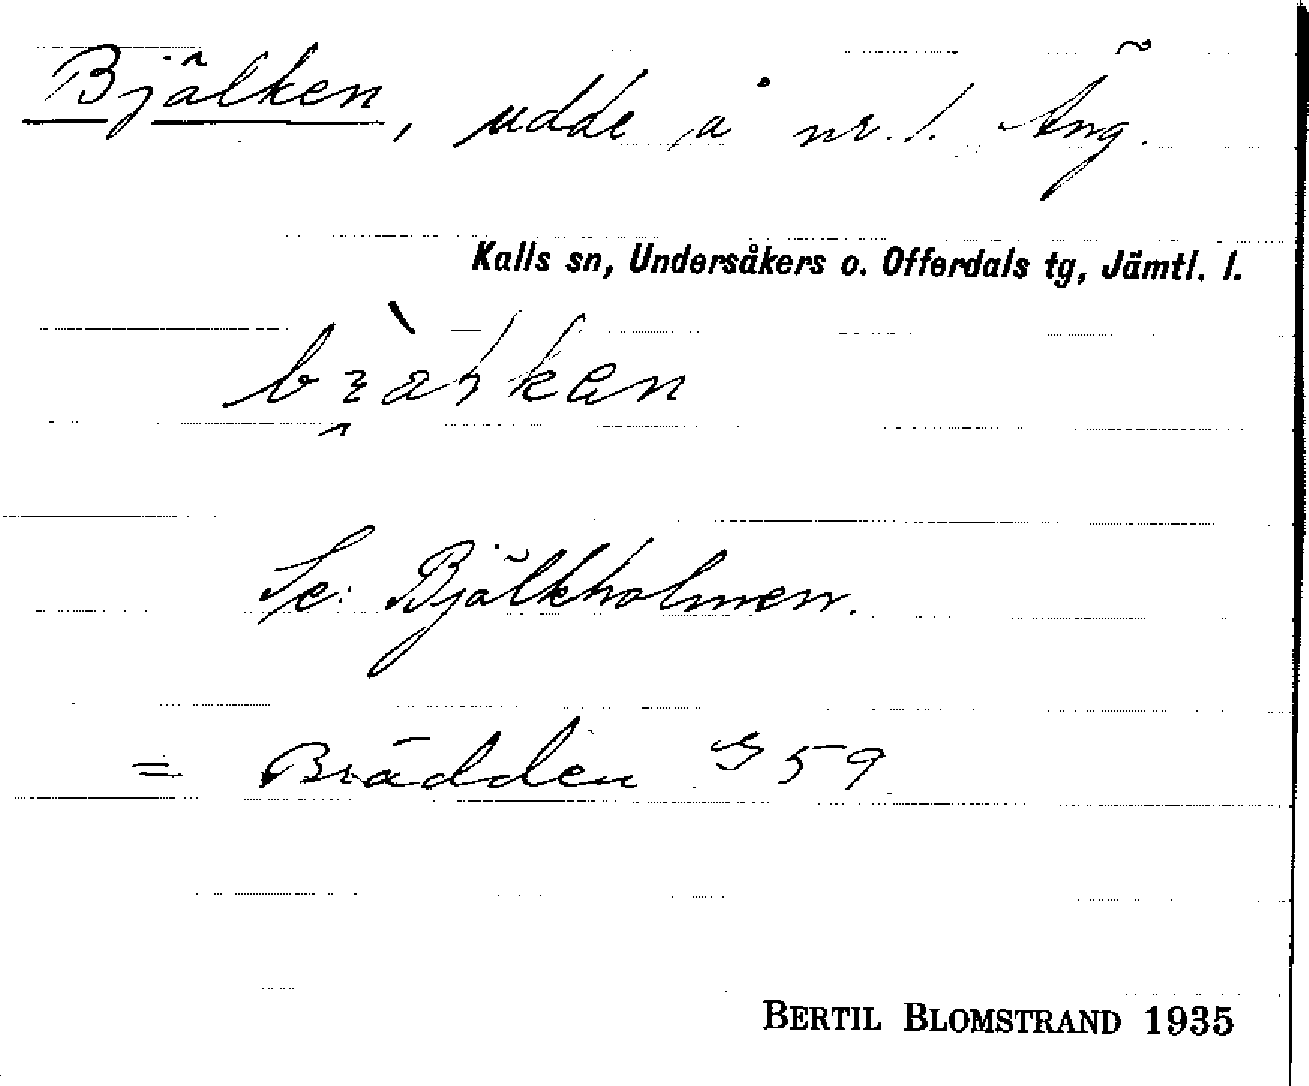 Bjälken, udde å nr. 1. Äng.
Kalls sn, Undersåkers o. Offerdals tg, Jämtl. l.
Se: Bjälkholmen.
= Brädden G 59
BERTIL BLOMSTRAND 1935